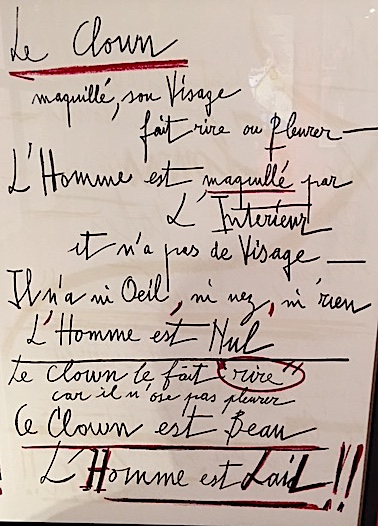 Le Clown
maquillé, son Visage
fait rire ou pleurer —
L'Homme est maquillé par
L'Intérieur
it n'a pas de Visage —
Il n'a ni Oeil, ni nez, ni rien
L'Homme est Nul
Le Clown le fait "rire"
car il n'ose pas pleurer
Ce Clown est Beau
L'Homme est Laid!!